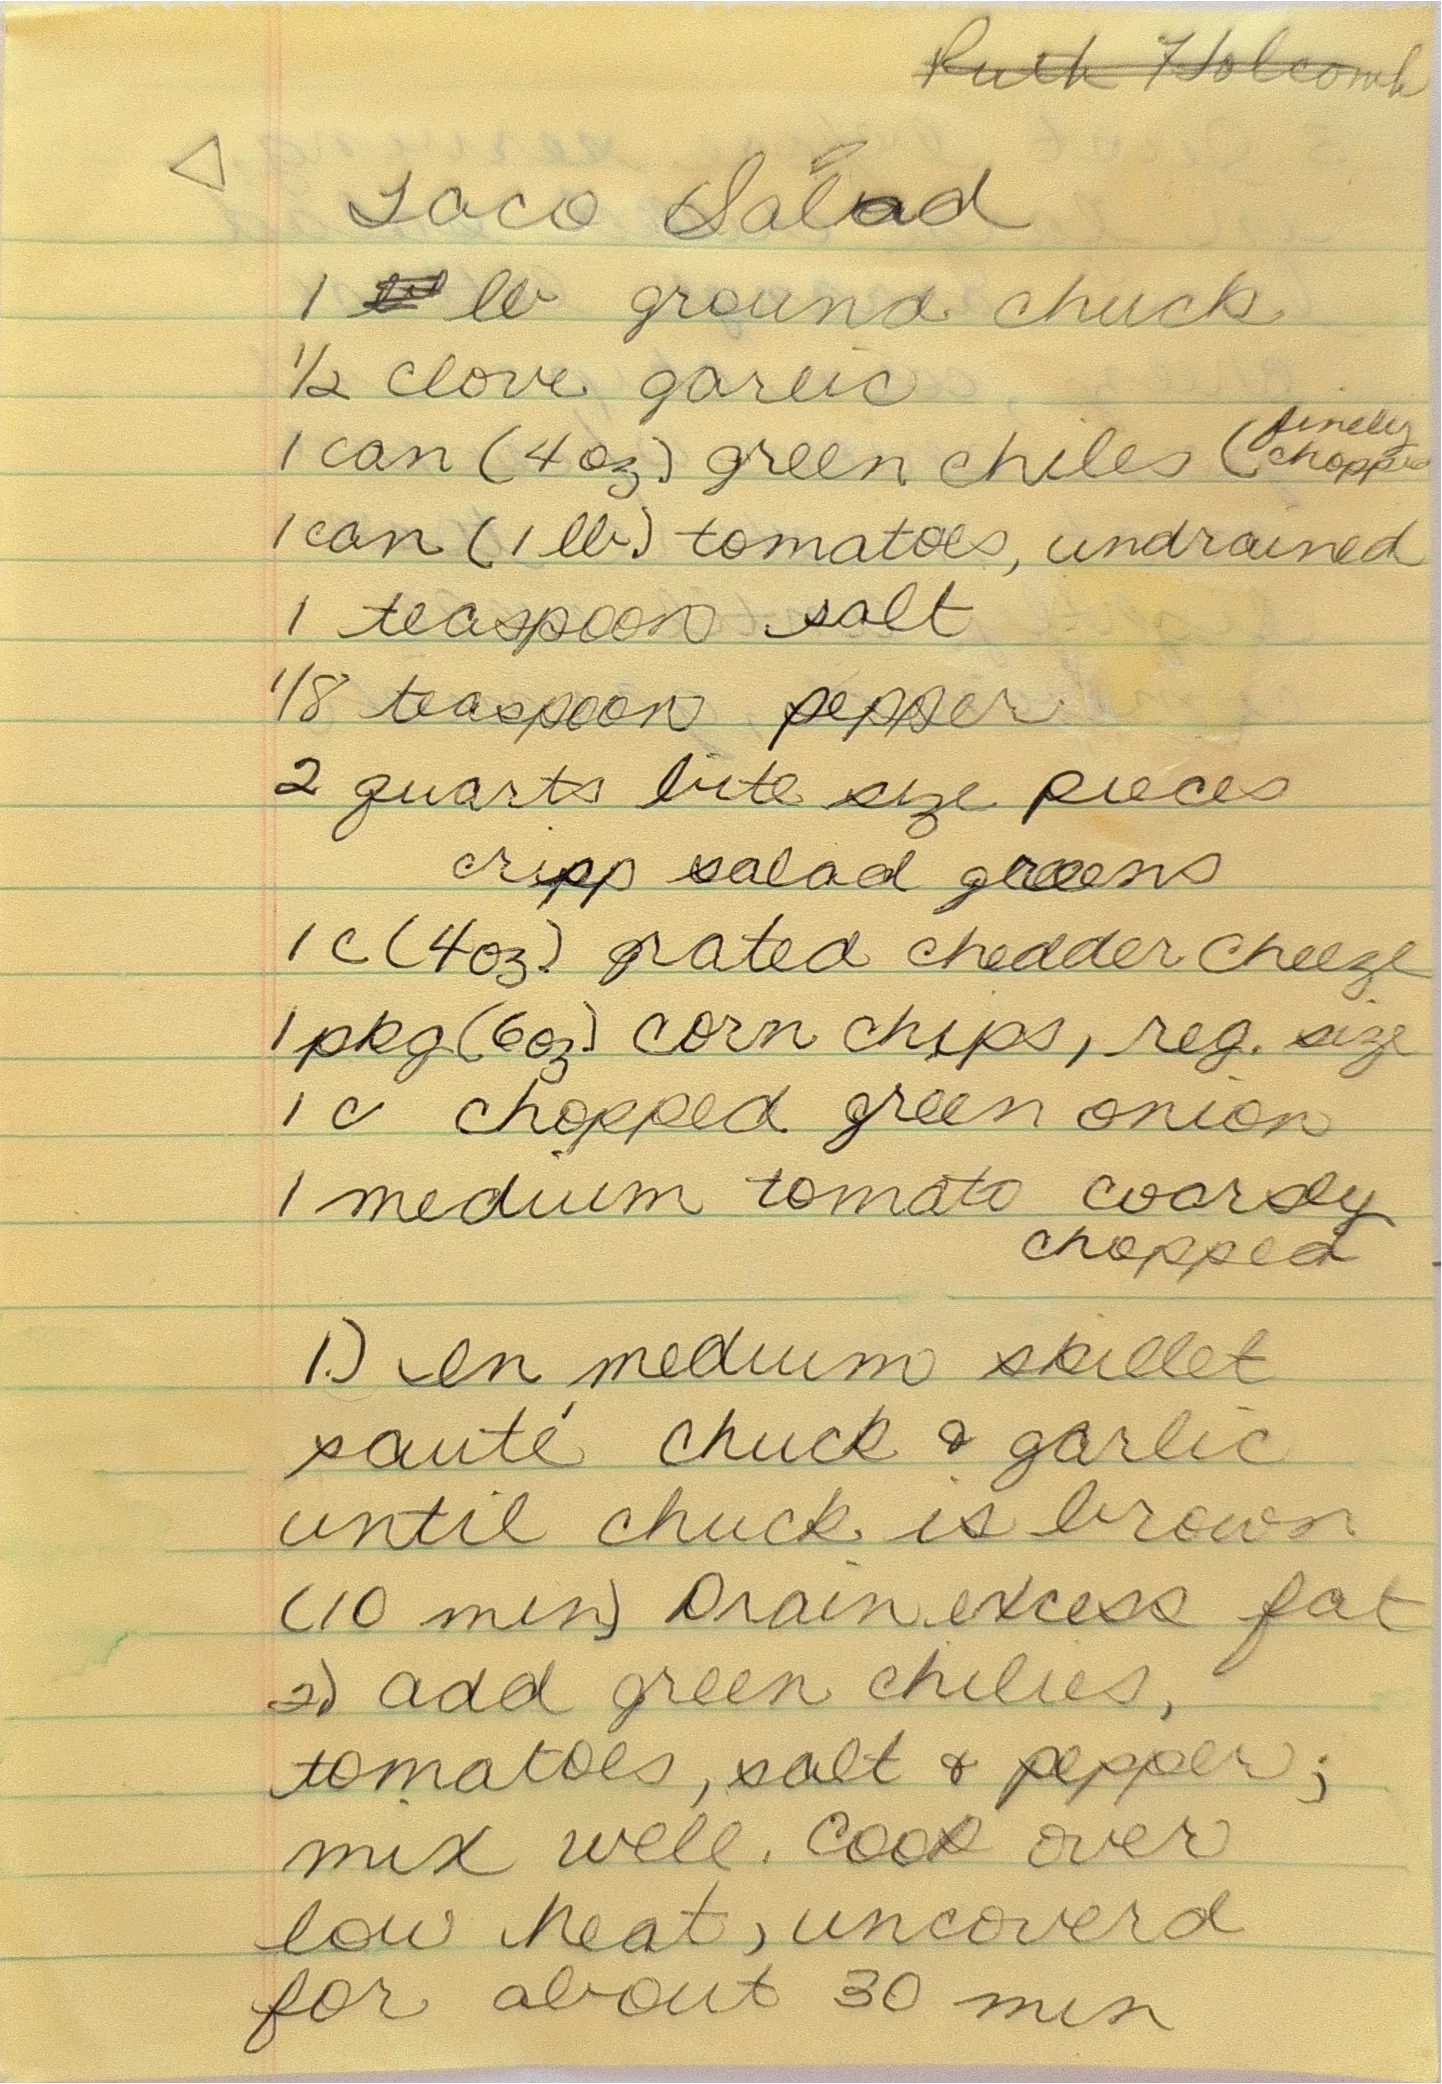 Ruth Holcomb
Taco Salad
1 lb ground chuck
1/2 clove garlic
1 can (4 oz) green chiles (finely
chopped
1 can (1 lb.) tomatoes, undrained
1 teaspoon salt
1/8 teaspoon pepper
2 quarts bite size pieces
cripp salad greens
1 c (4 oz.) grated chedder cheeze
1 pkg (6 oz.) corn chips, reg. size
1 c chopped green onion
1 medium tomato coarsly
chopped
1.) In medium skillet
sauté chuck & garlic
until chuck is brown
(10 min) Drain excess fat
2) add green chilies,
tomatoes, salt & pepper;
mix well. Cook over
low heat, uncoverd
for about 30 min